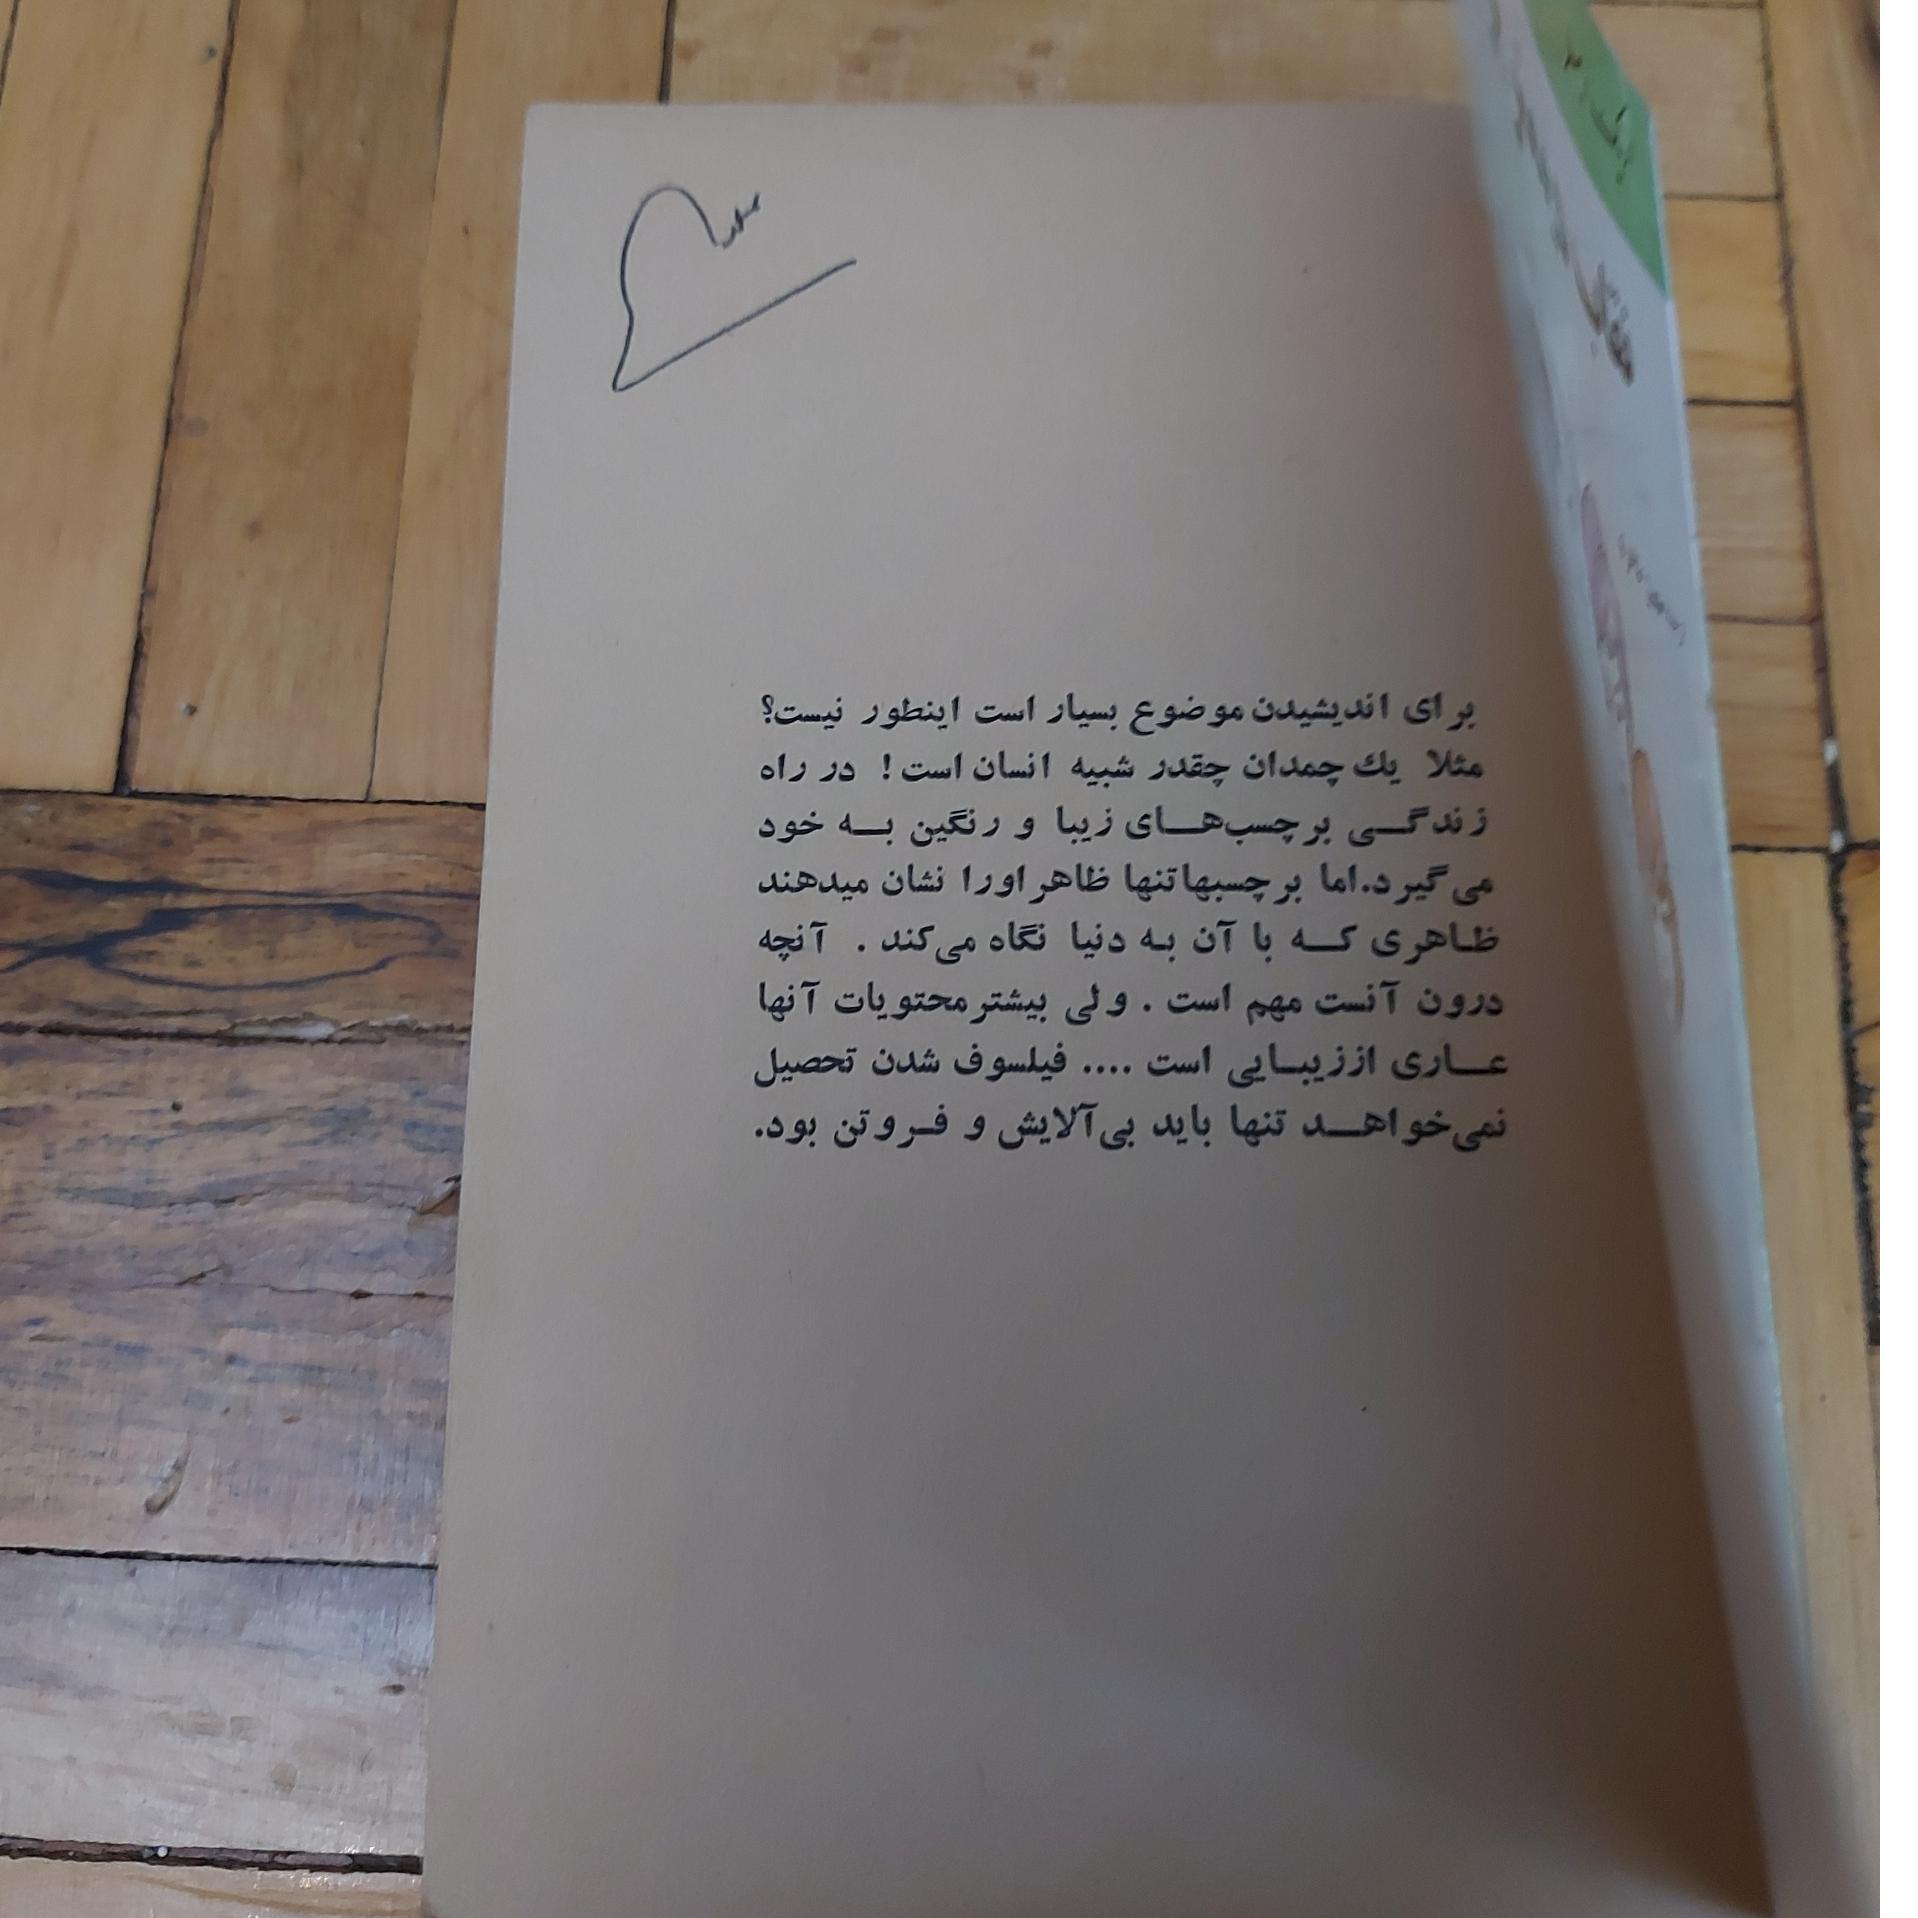 برای اندیشیدن موضوع بسیار است اینطور نیست؟
مثلا یك چمدان چقدر شبیه انسان است! در راه
زندگـــی برچسب‌هـــای زیبا و رنگین بـــه خود
می‌گیرد.اما برچسبهاتنها ظاهراورا نشان میدهند
ظـاهری کـــه با آن بـه دنیا نگاه می‌کند . آنچه
درون آنست مهم است . ولی بیشترمحتویات آنها
عـــاری اززیبـــایی است .... فیلسوف شدن تحصیل
نمی‌خواهـــد تنها باید بی‌آلایش و فـروتن بود.